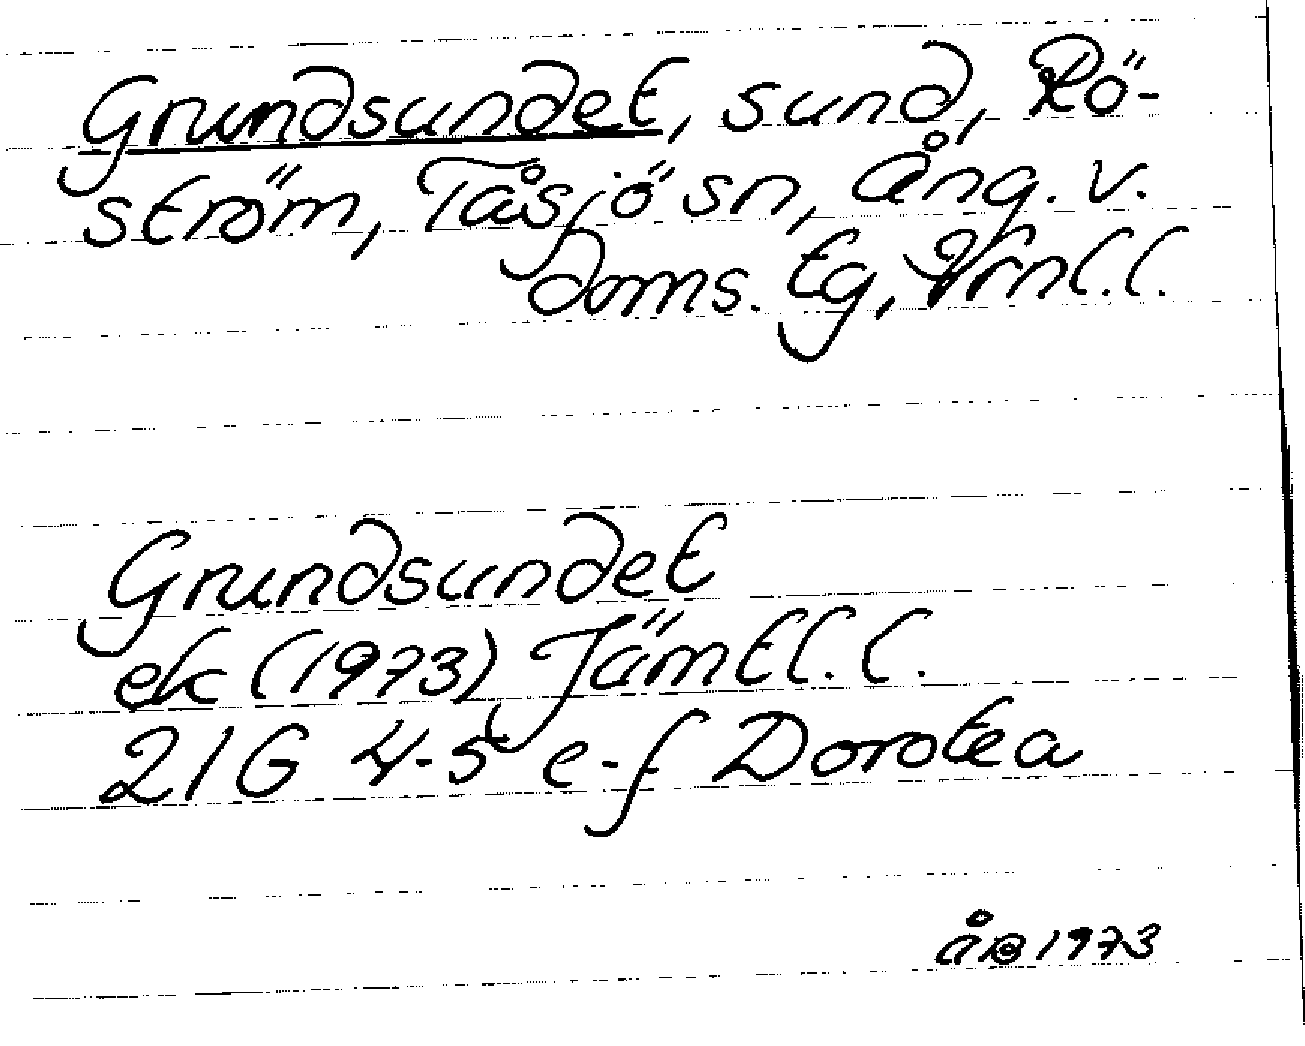 Grundsundet, sund, Rö-
ström, Tåsjö sn, Ång. v.
doms. tg, Vrnl.l.
Grundsundet
ek (1973) Jämtl.l.
21G 4-5 e-f Dorotea
ÅB 1973